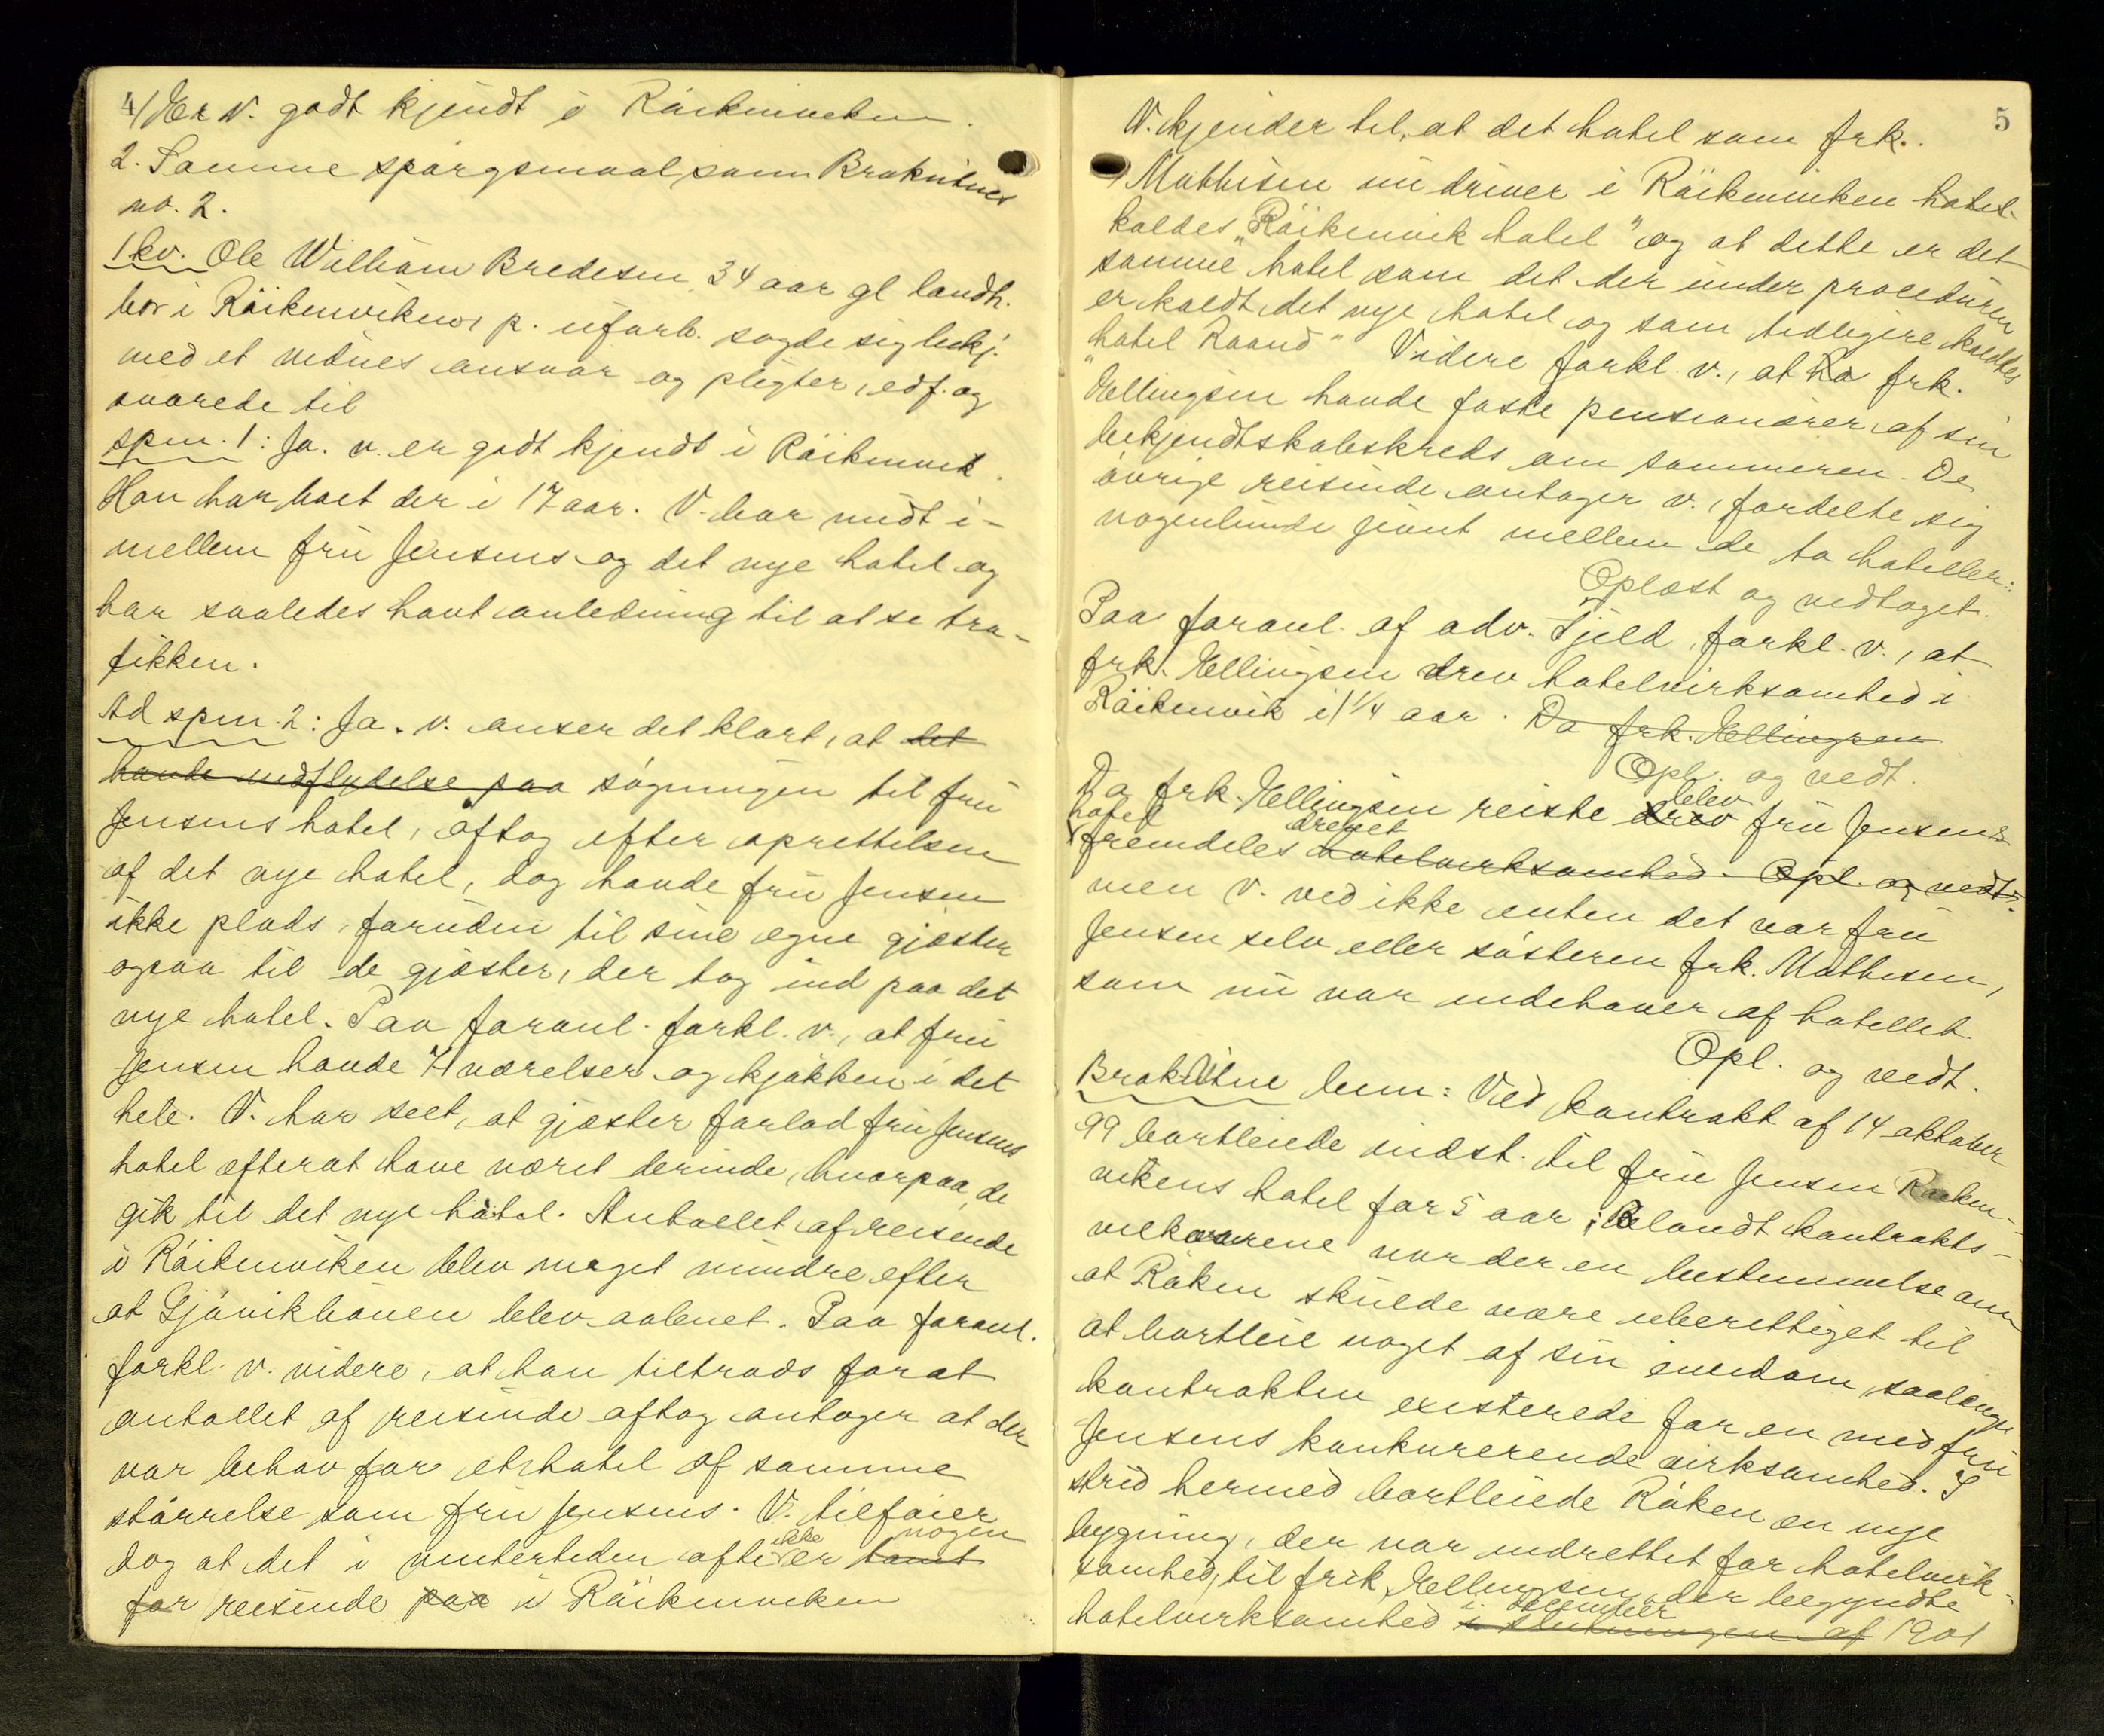 4
1/ Er v. godt kjendt i Röikenviken.
2. Samme spørgsmaal som Brakvidnes
no. 2.
1 kv. Ole William Bredesen, 34 aar gl landh.
bor i Röikenviken, p. uforb. sagde sig bekj.
med et vidnes ansvar og pligter, edf. og
svarede til
spm. 1: Ja. v. er godt kjendt i Röikenvik.
Han har boet der i 17 aar. V. bor midt i-
mellem fru Jensens og det nye hotel og
har saaledes havt anledning til at se tra-
fikken.
Ad spm. 2: Ja. v. anser det klart, at det
havde indflydelse paa søgningen til fru
Jensens hotel, aftog efter oprettelsen
af det nye hotel, dog havde fru Jensen
ikke plads, foruden til sine egne gjæster
ogsaa til de gjæster, der tog ind paa det
nye hotel. Paa foranl. forkl. v., at fru
Jensen havde 7 værelser og kjøkken i det
hele. V. har seet, at gjæster forlod fru Jensens
hotel efterat have været derinde, hvorpaa de
gik til det nye hotel. Antallet af reisende
i Röikenviken blev meget mindre efter
at Gjøvikbanen blev aabnet. Paa foranl.
forkl. v. videre, at han tiltrods for at
antallet af reisende aftog antager at der
var behov for et hotel af samme
størrelse som fru Jensens. V. tilføier
dog at det i vinterheden ofte ikke er tomt nogen
for reisende paa i Röikenviken
5
V. kjender til, at det hotel som frk.
Mathisen nu driver i Röikenviken hotel
kaldes "Röikenvik hotel" og at dette er det
samme hotel som det der under proceduren
er kaldt det nye hotel og som tidligere kaldtes
"hotel Raand" Videre forkl. v., at ha frk.
Ellingsen havde faste pensionærer af sin
bekjendtskabskreds om sommeren. De
øvrige reisende antager v., fordelte sig
nogenlunde jevnt mellem de to hoteller.
Oplæst og vedtaget.
Paa foranl. af adv. Fjeld, forkl. v., at
frk. Ellingsen drev hotelvirksomhed i
Röikenvik i 1 1/4 aar. Da frk. Ellingsen
Opl. og vedt.
Da frk. Ellingsen reiste drev blev fru Jensens
hotel
fremdeles drevet hotelvirksomhed. Opl. og vedt.
men v. ved ikke enten det var fru
Jensen selv eller søsteren frk. Mathisen,
som nu var indehaver af hotellet.
Opl. og vedt.
Brakvidne bem: Ved kontrakt af 14 oktober
99 bortleiede indst. til fru Jensen Røken-
vikens hotel for 5 aar; Blandt kontrakts-
vilkaarene var der en bestemmelse om
at Røken skulde være uberettiget til
at bortleie noget af sin eiendom, saalænge
kontrakten existerede for en med fru
Jensens konkurerende virksomhed. I
strid hermed bortleiede Røken en nye
bygning, der var indrettet for hotelvirk-
somhed, til frøk. Ellingsen, der begyndte
hotelvirksomhed i slutningen af i december 1901